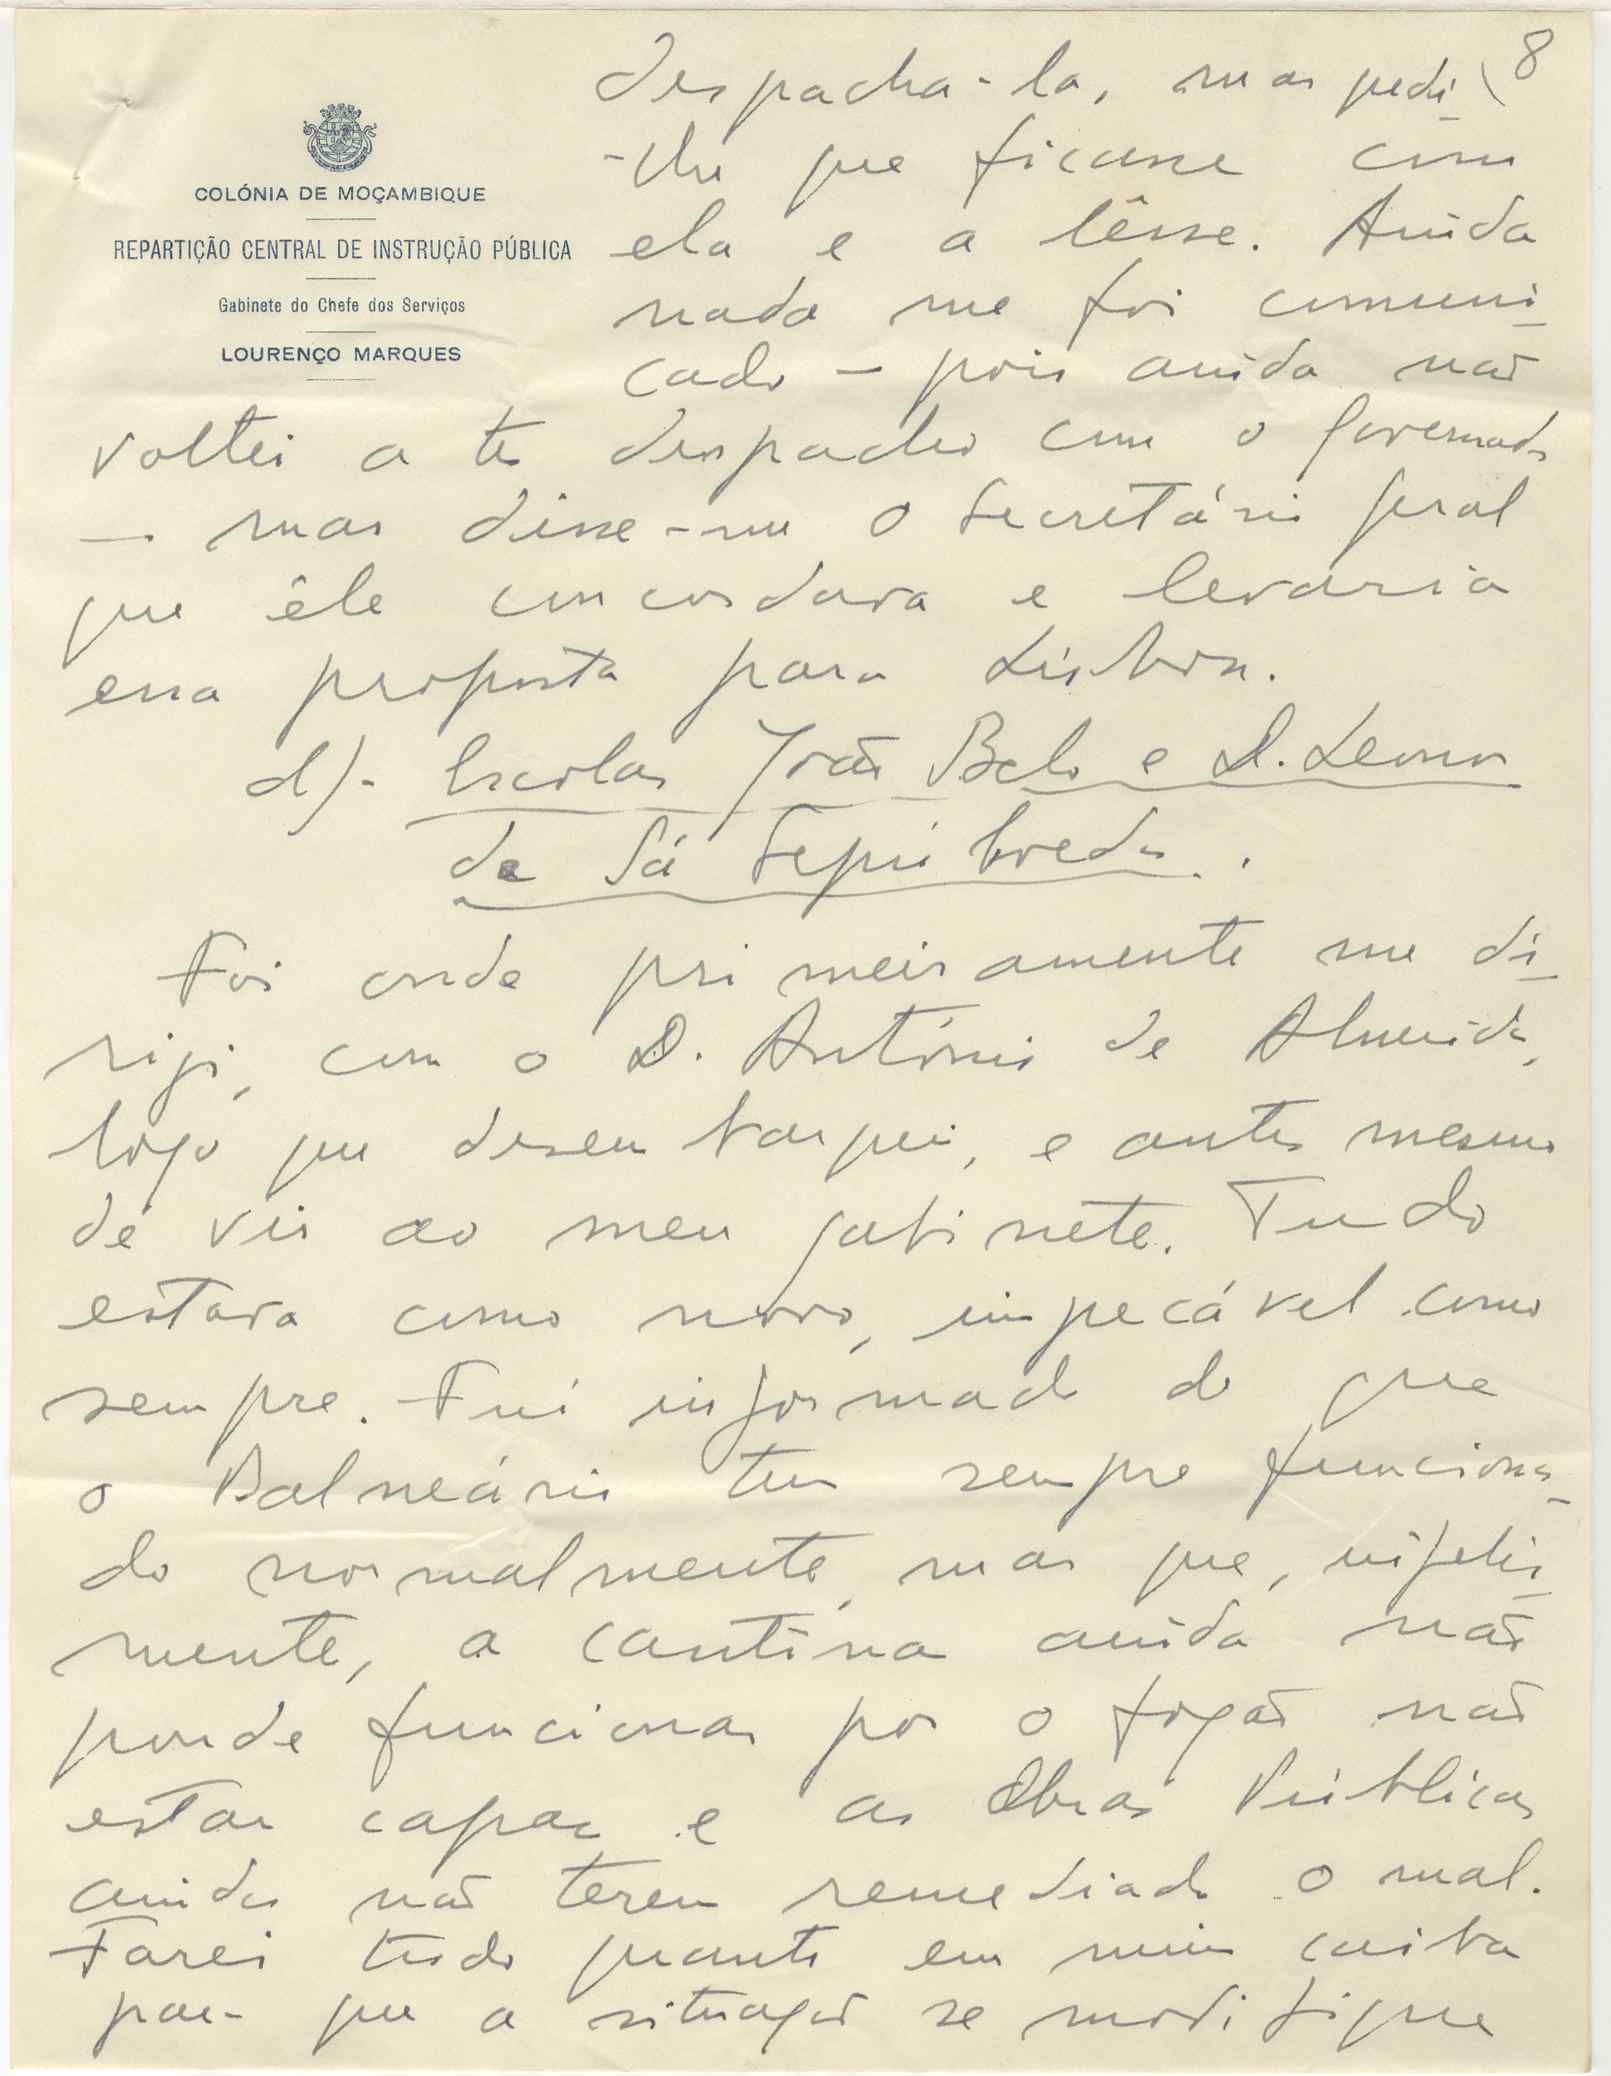 8
COLÓNIA DE MOÇAMBIQUE
REPARTIÇÃO CENTRAL DE INSTRUÇÃO PÚBLICA
Gabinete do Chefe dos Serviços
LOURENÇO MARQUES
despacha-la, mas pedi
-lhe que ficasse com
ela e a lêsse. Ainda
nada me foi comuni-
cado — pois ainda não
voltei a ter despacho com o Governador
— mas disse-me o Secretário Geral
que êle concordara e levaria
essa proposta para Lisboa.
d)- Escolas João Belo e D. Leonor
de Sá Sepúlveda.
Foi onde primeiramente me di-
rigi, com o D. António de Almeida,
logo que desembarquei, e antes mesmo
de vir ao meu gabinete. Tudo
estava como novo, impecável como
sempre. Fui informado de que
o Balneário tem sempre funciona-
do normalmente, mas que, infeliz-
mente, a cantina ainda não
poude funcionar por o fogão não
estar capaz e as Obras Públicas
ainda não terem remediado o mal.
Farei tudo quanto em mim caiba
para que a situação se modifique